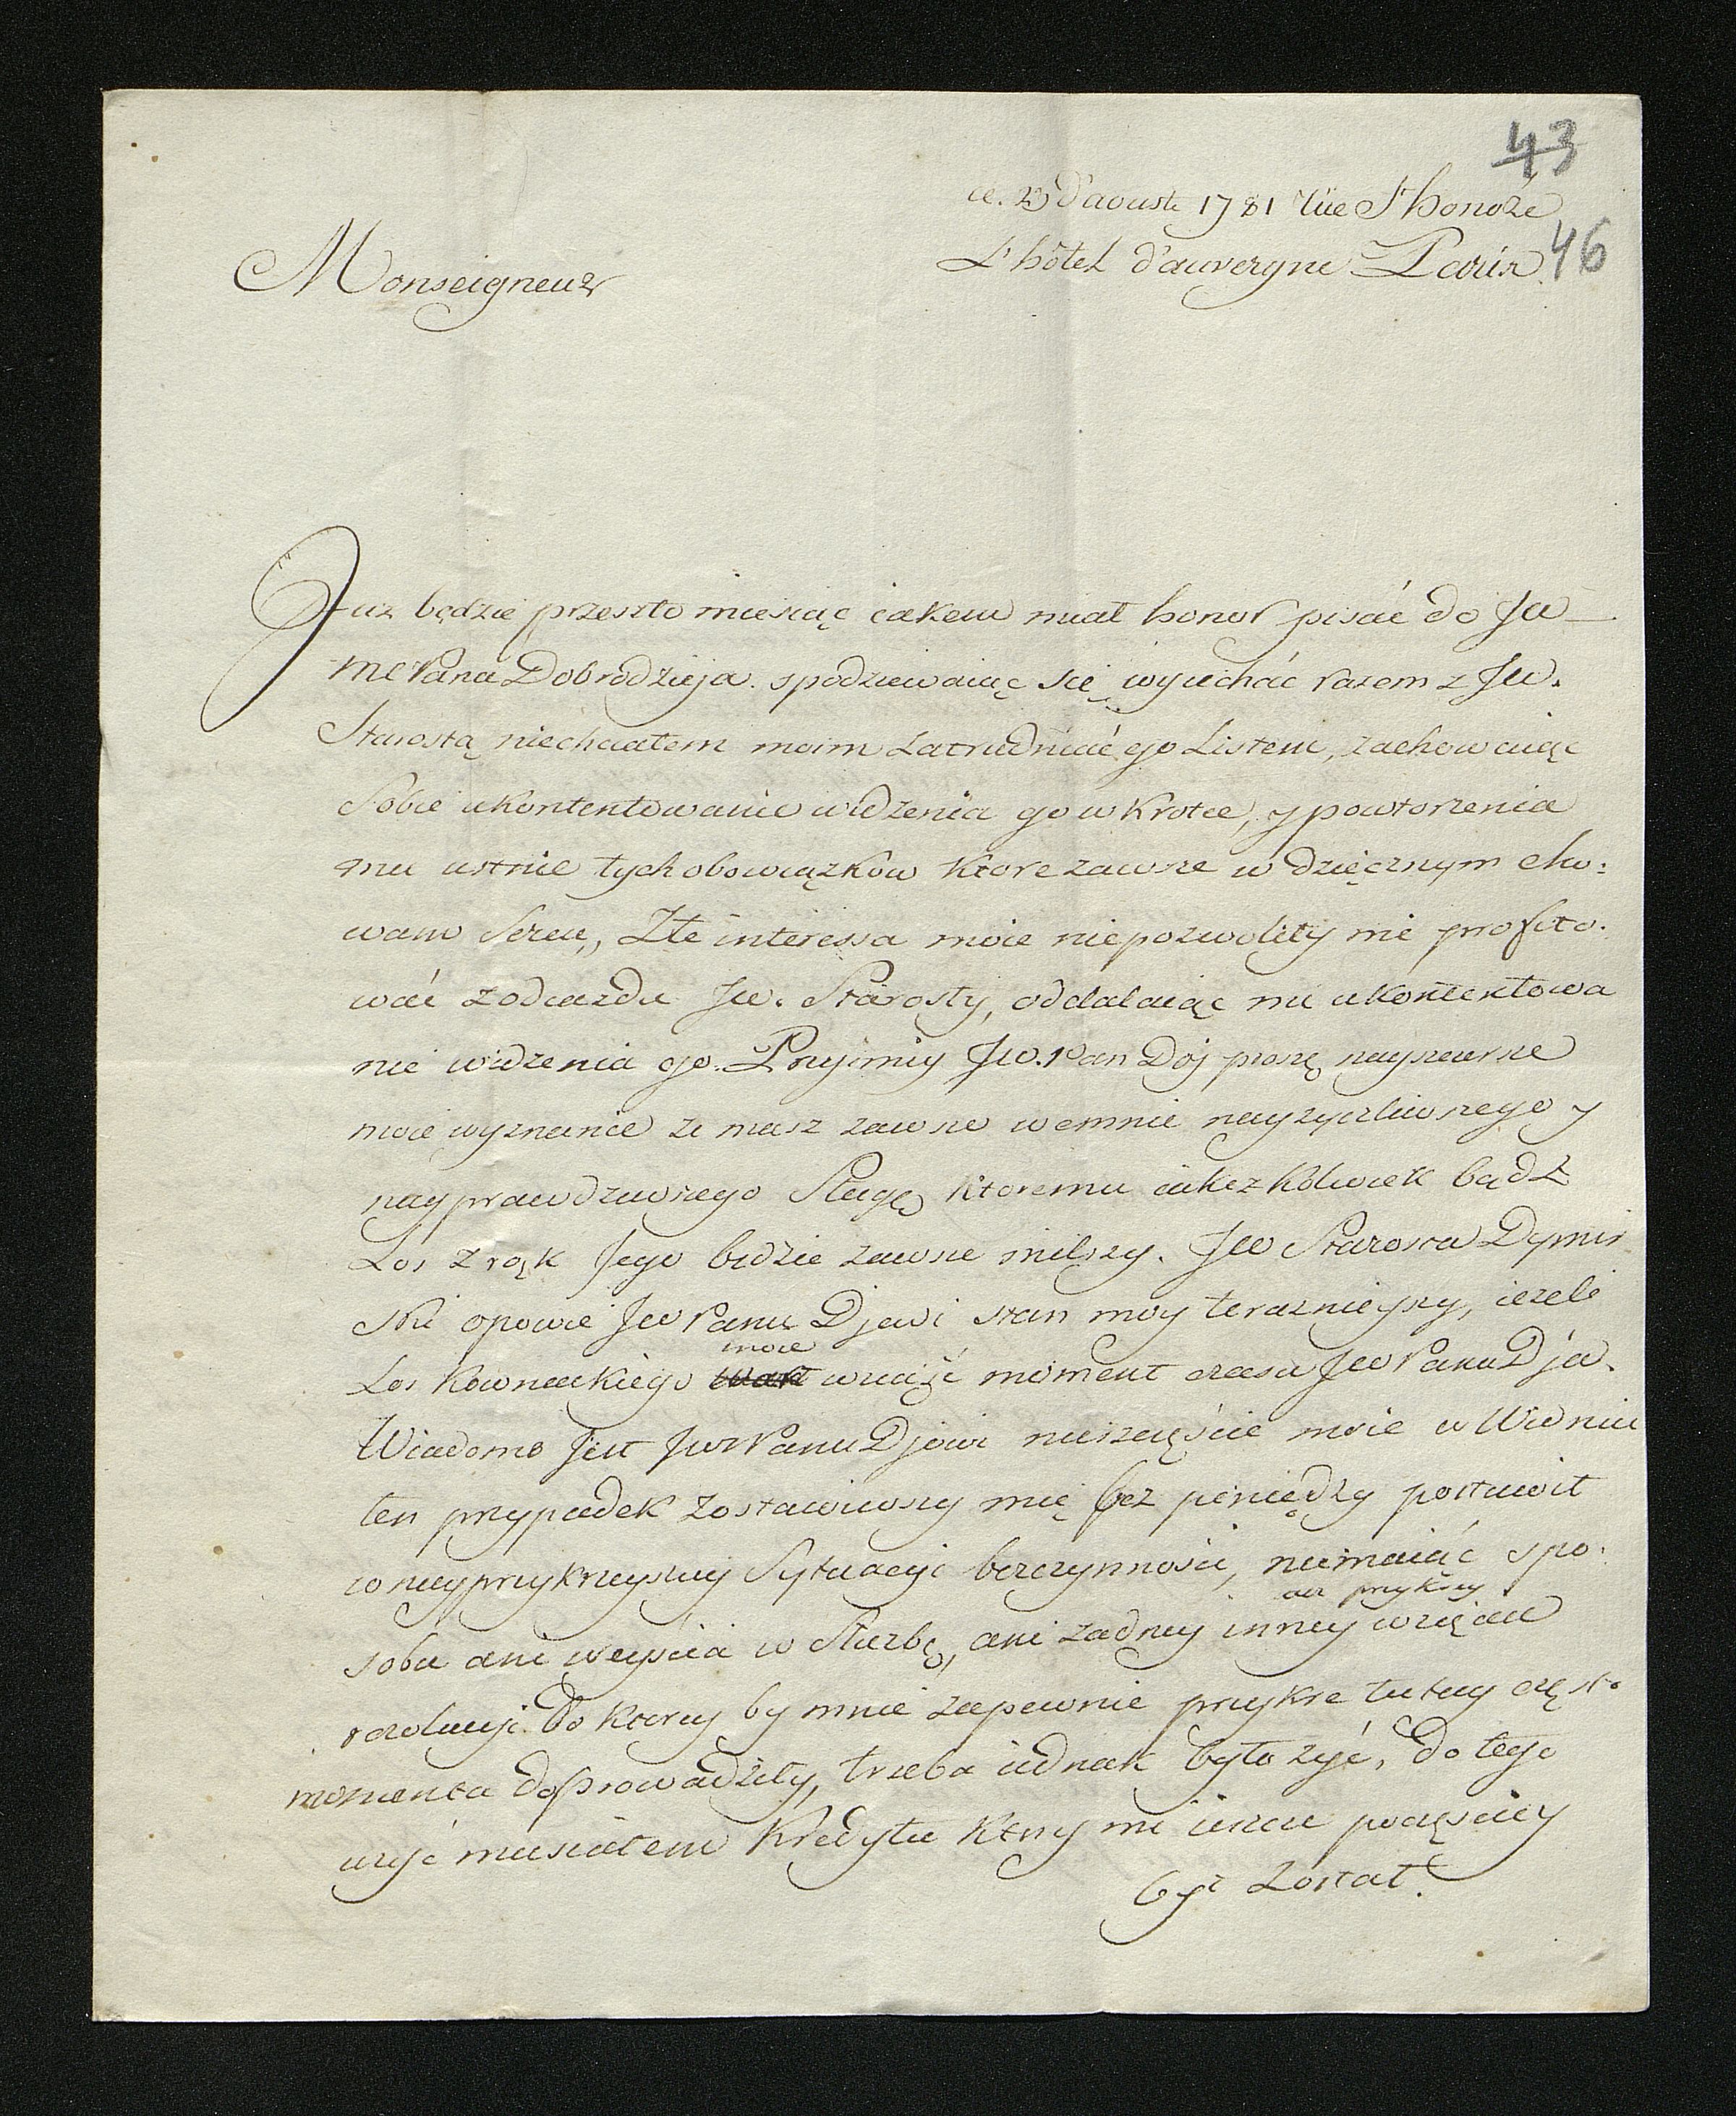 43
ce. 23 d'aouste 1781 rüe S'honoré
L'hôtel d'auvergne Paris.
46
Monseigneur
Juz będzie przeszło miesiąc iakem miał honor pisáć do JW
MCPana Dobrodzieja. spodziewaiąc się wyiechać razem z JW.
Starostą niechciałem moim zatrudniać go Listem, zachowaiąc
Sobie ukontentowanie widzenia go w krotce, y powtorzenia
mu ustnie tych obowiązków ktore zawsze w dzięcznym cho:
wam Sercu, Złe interessa moie niepozwoliły mi profito.
wáć z odiazdu JW. Starosty, oddalaiąc mi ukontentowa
nie widzenia go. Przyimiy JW. Pan Dój proszę nayszczersze
moie wyznanie ze masz zawsze wemnie nayzyczliwszego y
nayprawdziwszego Sługę ktoremu iakizkolwiek bądź
Los z rąk Jego będzie zawsze milszy. JW Starosta Dymir
ski opowie JW Panu Djowi stan moy teraznieyszy, iezeli
moie
Los Kownackiego wziąść moment czasu JW Pana Dja.
Wiadomo Jest JW Panu Djowi nieszczęście moie w Widniu
ten przypadek zostawiwszy mię bez pieniędzy postawił
w nayprzykrzeyszey Sytuacyi bezczynności, niemaiąć spo:
az przykrey
sobu ani weyścia w Służbę, ani zadney inney wzięcia
rezolucyi. Do ktorey by mnie zapewnie przykre tutay częste
momenta doprowadziły, trzeba iednak było zyć, do tego
uzyć musiałem Kredytu ktory mi ieszcze poczęściey
był został.